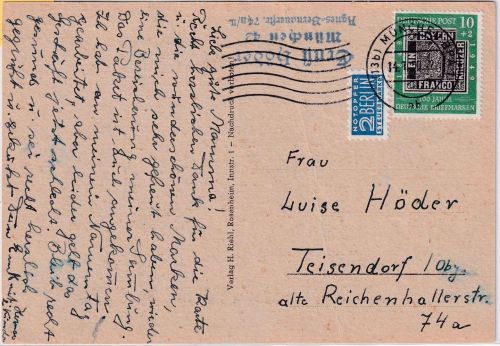 Liebe gute Mamma!
Recht herzlichen Dank für die Karte
u. die wunderschönen Marken,
die mich sehr gefreut haben, wieder
eine Bereicherung meiner Sammlung.
Das Paket ist gut angekommen.
Ich hab an meinem Namenstag
gearbeitet, aber leider geht das
Geschäft jetzt schlecht. Bleib recht
gesund u. sei vielt herzlich
gegrüßt u. geküsst Dein Ernst
u. Kinder
Ernst Höder
München 42
Agnes-Bernauerstr.
Verlag H. Riehl, Rosenheim, Innstr. 1 - Nachdruck verboten
(13b) MÜNCHEN
DEUTSCHE POST
10
+2
BAYERN
EIN
KREUZER
FRANCO
1849
1949
100 JAHRE
DEUTSCHE BRIEFMARKEN
NOTOPFER
2 BERLIN
STEUERMARKE
Frau
Luise Höder
Teisendorf /Obb.
alte Reichenhallerstr.
74a